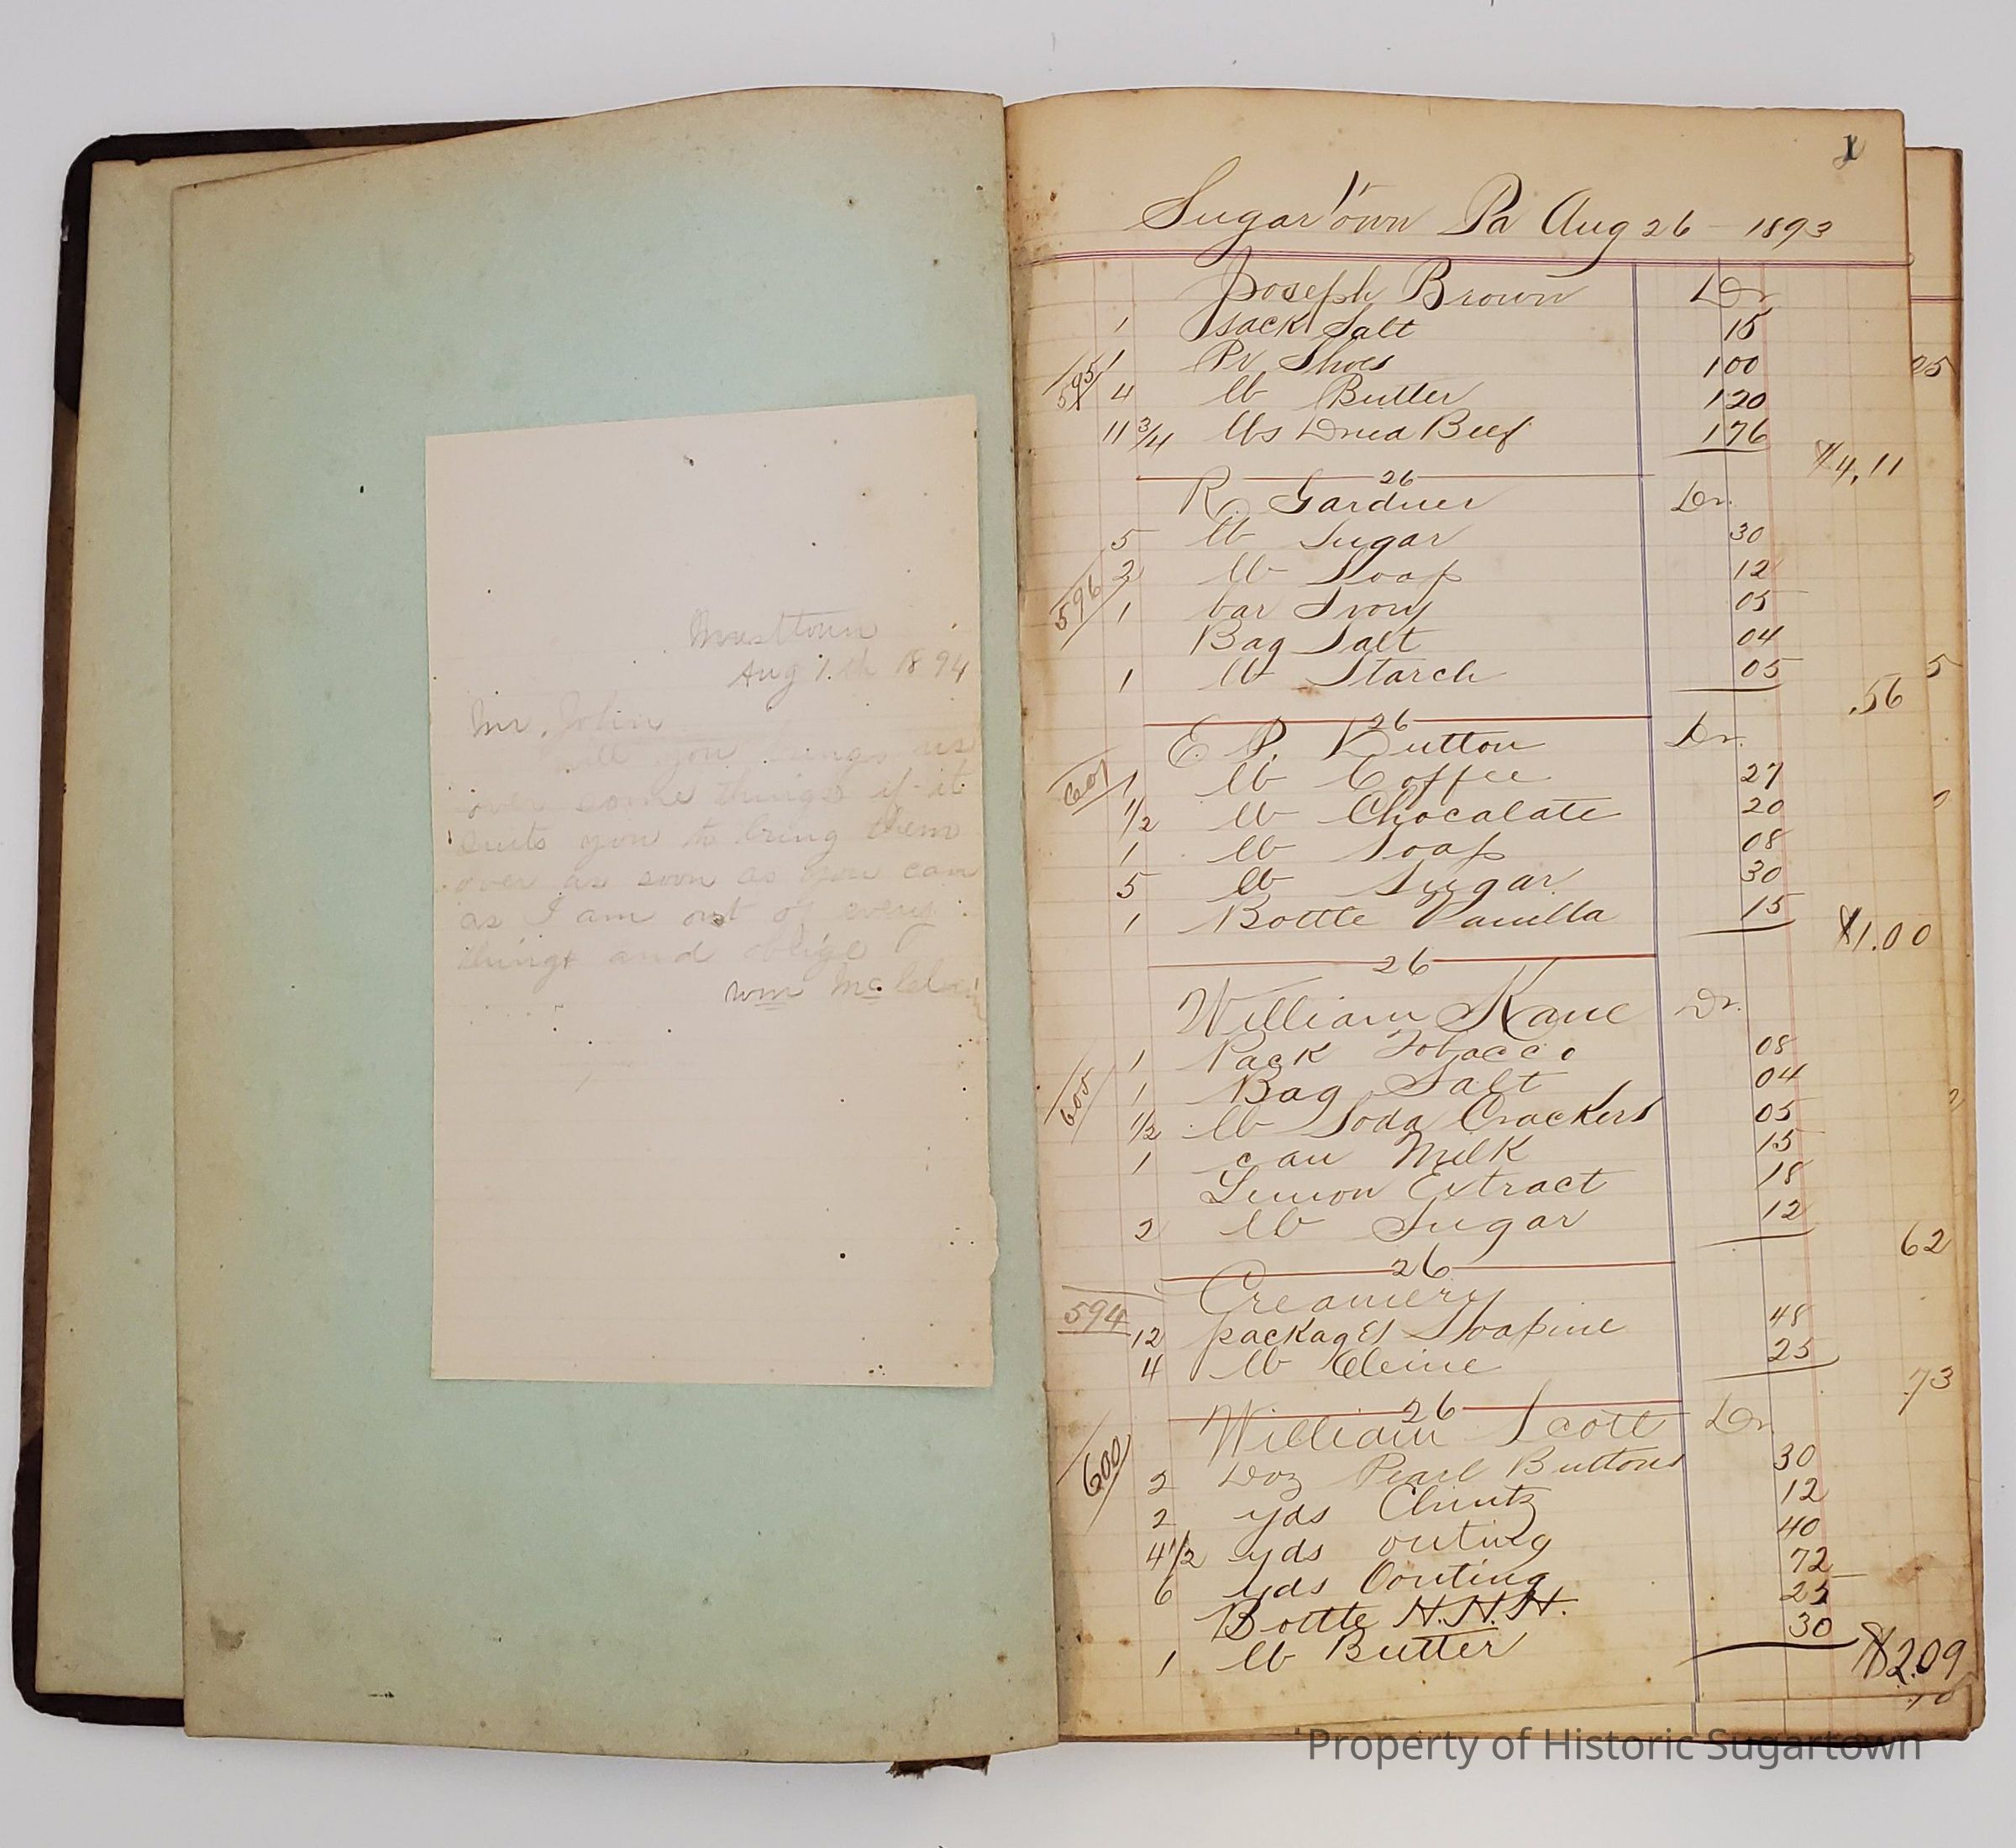 Westtown
Aug 7.th 1894
Mr. John
will you bring us
over some things if it
suits you to bring them
over as soon as you can
as I am out of every
things and oblige
Wm Mc
1
Sugartown Pa Aug 26 - 1893
Joseph Brown Dr
1 sack Salt 15
595 1 Pr Shoes 100
4 lb Butter 120
11 3/4 lbs Dried Beef 176
$4,11
26
R. Gardner Dr.
5 lb Sugar 30
2 lb Soap 12
596 1 bar Ivory 05
Bag Salt 04
1 lb Starch 05
.56
26
E. P. Dutton Dr.
601 1 lb Coffee 27
1/2 lb Chocalate 20
1 lb Soap 08
5 lb Sugar 30
1 Bottle Vanilla 15
$1.00
26
William Kane Dr.
1 Pack Tobacco 08
605 1 Bag Salt 04
1/2 lb Soda Crackers 05
1 can Milk 15
Lemon Extract 18
2 lb Sugar 12
62
26
594 Creamery
12 packages Soapine 48
4 lb Oleine 25
.73
26
William Scott Dr
600 2 Doz Pearl Buttons 30
2 yds Chintz 12
4 1/2 yds outing 40
6 yds Outing 72
Bottle H.H.H. 25
1 lb Butter 30
$2.09
Property of Historic Sugartown